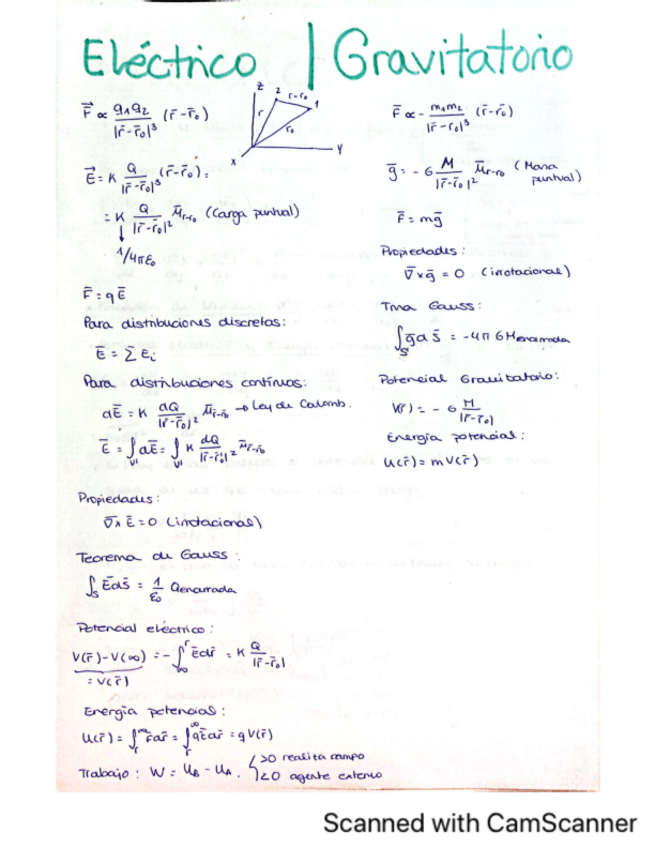 Eléctrico | Gravitatorio
F⃗ ∝ q₁q₂/|r̄-r̄₀|³ (r̄-r̄₀)
z 2 r-r₀ 1
r r₀
x y
E⃗ = K Q/|r̄-r̄₀|³ (r̄-r̄₀) =
= K Q/|r̄-r̄₀|² ū r-r₀ (Carga puntual)
↓
1/4πε₀
F̄ = qĒ
Para distribuciones discretas:
Ē = Σ Ēi
Para distribuciones continuas:
dĒ = K dQ/|r̄-r̄₀|² ū r̄-r̄₀ → Ley de Coulomb.
Ē = ∫v' dĒ = ∫v' K dQ/|r̄-r̄₀'|² ū r-r₀
Propiedades:
∇̄x Ē = 0 (irrotacional)
Teorema de Gauss:
∫s Ēds̄ = 1/ε₀ Qencerrada
Potencial eléctrico:
V(r̄) - V(∞) = - ∫∞^r Ēdr̄ = K Q/|r̄-r̄₀|
= V(r̄)
Energía potencial:
U(r̄) = ∫r^∞ F̄dr̄ = ∫r^∞ qĒdr̄ = qV(r̄)
Trabajo: W = UB - UA. { >0 realiza campo
<0 agente externo
F̄ ∝ - m₁m₂/|r̄-r̄₀|³ (r̄-r̄₀)
ḡ = - G M/|r̄-r̄₀|² ū r-r₀ (Masa
puntual)
F̄ = mḡ
Propiedades:
∇̄xḡ = 0 (irrotacional)
Tma Gauss:
∫s ḡds̄ = -4πGMencerrada
Potencial Gravitatorio:
V(r) = - G M/|r̄-r̄₀|
Energía potencial:
U(r̄) = mV(r̄)
Scanned with CamScanner